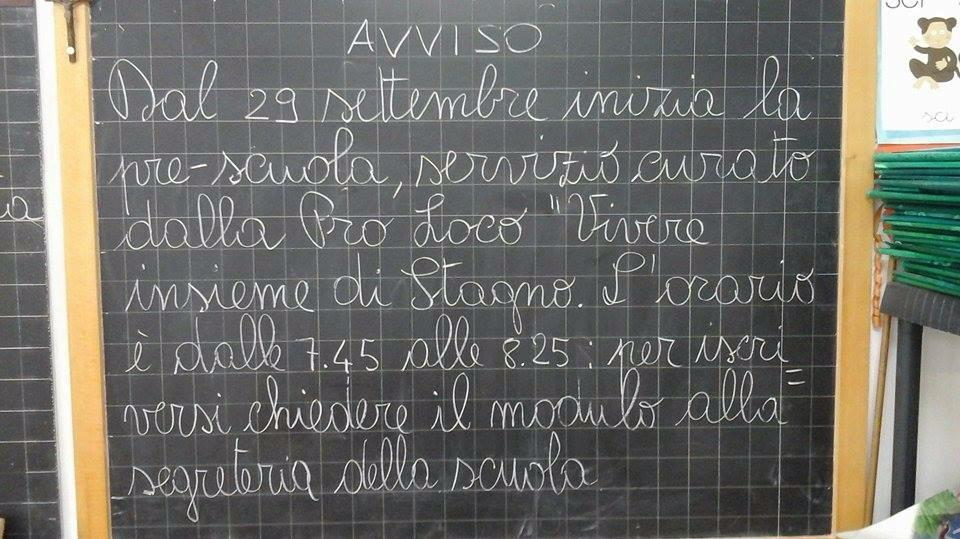 AVVISO
Dal 29 settembre inizia la
pre-scuola, servizio curato
dalla Pro Loco "Vivere
insieme di Stagno. L'orario
è dalle 7.45 alle 8.25: per iscri
versi chiedere il modulo alla =
segreteria della scuola
sci